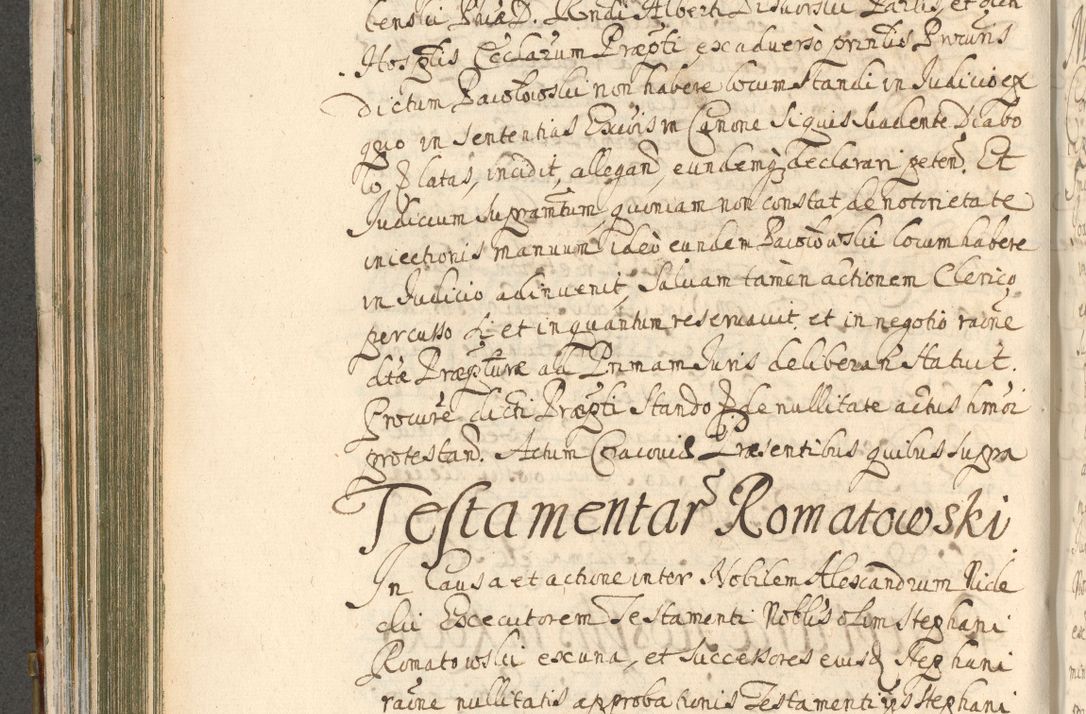 censki Phiae D. Rendi Alberti Disuorski
Hosptlis Eccliarum Praepti ex adverso printis Procuris
dictum Pawlowski non habere locum standi in Judicio ex
quo in sententias Excōis in Canone Si quis suadente Diabo
lo, latas, incidit, allegan, eundemq declarari peten. Et
Judicium supramtum, quoniam non constat de notorietate
iniectionis manuum ideo eundem Pawlowski locum habere
in Judicio adinvenit, Salvam tamen actionem Clerico
percusso Si et in quantum reservavit. et in negotio raine
dtae Praepturae ad Primam Juris deliberan statuit.
Procure dicti Praepti Stando P. de nullitate actus hmoi
protestand. Actum Cracoviae Praesentibus quibus supra
Testamentar Romatowski
In Causa et actione inter Nobilem Alexandrum Nide
cki Executorem Testamenti Noblis olim Stephani
Romatowski ex una, et Successores eiusd Stephani
raine nullitatis approbationis Testamenti ips Stephani